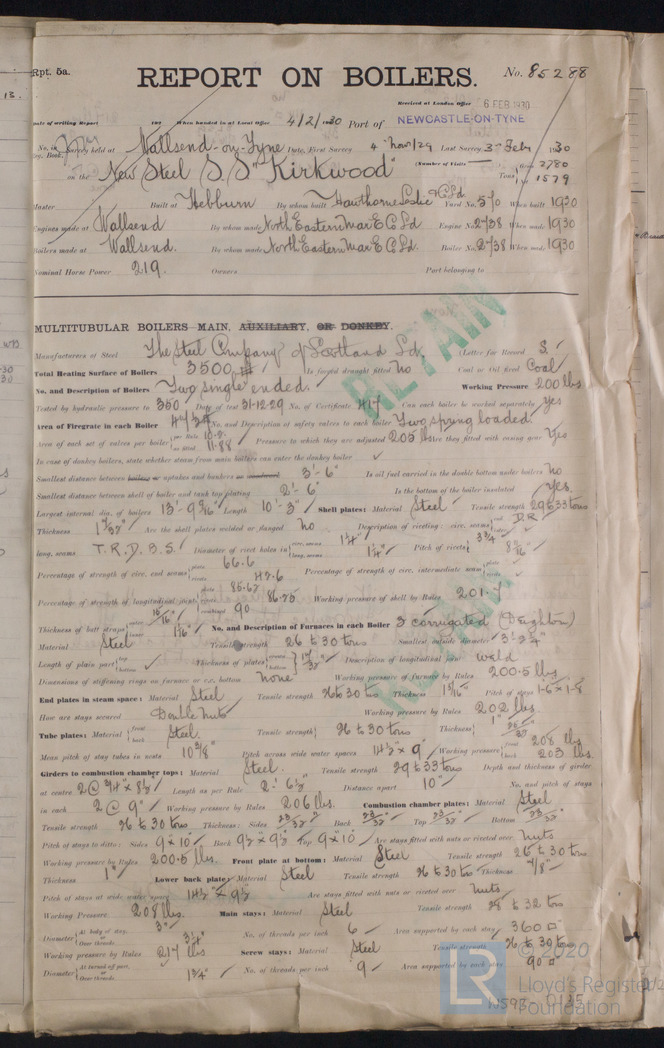 Rpt. 5a.
REPORT ON BOILERS.
No. 85288
13.
Received at London Office 6 FEB 1930
Date of writing Report 192 When handed in at Local Office 4/2/1930 Port of NEWCASTLE-ON-TYNE
No. in Survey held at Wallsend-on-Tyne Date, First Survey 4 Nov/29 Last Survey 3 Feb 1930
Reg. Book.
(Number of Visits
on the New Steel S.S "Kirkwood" Tons 2780
1579
Master Built at Hebburn By whom built Hawthorn Leslie & Co Ld Yard No. 570 When built 1930
Engines made at Wallsend By whom made North Eastern Mar E Co Ld Engine No. 2738 When made 1930
Boilers made at Wallsend. By whom made North Eastern Mar E Co Ld. Boiler No. 2738 When made 1930
Nominal Horse Power 219. Owners Port belonging to
MULTITUBULAR BOILERS MAIN, AUXILIARY, OR DONKEY.
Manufacturers of Steel The Steel Company of Scotland Ld. (Letter for Record S.
Total Heating Surface of Boilers 3500 Is forced draught fitted No Coal or Oil fired Coal
No. and Description of Boilers Two single ended. Working Pressure 200 lbs
Tested by hydraulic pressure to 350 Date of test 31-12-29 No. of Certificate 417 Can each boiler be worked separately Yes
Area of Firegrate in each Boiler No. and Description of safety valves to each boiler Two spring loaded.
Area of each set of valves per boiler per Rule 10.2 as fitted 11.88 Pressure to which they are adjusted 205 lbs Are they fitted with easing gear Yes
In case of donkey boilers, state whether steam from main boilers can enter the donkey boiler
Smallest distance between boilers or uptakes and bunkers or woodwork 3'-6" Is oil fuel carried in the double bottom under boilers No
Smallest distance between shell of boiler and tank top plating 2'-6" Is the bottom of the boiler insulated Yes.
Largest internal dia. of boilers 13'-9 9/16" Length 10'-3" Shell plates: Material Steel Tensile strength 29 to 33 tons
Thickness 1 5/32" Are the shell plates welded or flanged No Description of riveting: circ. seams end D.R inter
long. seams T.R.D.B.S. Diameter of rivet holes in circ. seams 1 1/4" long. seams 1 1/4" Pitch of rivets 3 3/4" 8 11/16"
Percentage of strength of circ. end seams plate 66.6 rivets 42.6 Percentage of strength of circ. intermediate seam plate rivets
Percentage of strength of longitudinal joint plate 85.67 rivets 86.75 combined 90 Working pressure of shell by Rules 201.7
Thickness of butt straps outer 15/16" inner 1 1/16" No. and Description of Furnaces in each Boiler 3 corrugated (Deighton)
Material Steel Tensile strength 26 to 30 tons Smallest outside diameter 3'-3 3/4"
Length of plain part top bottom Thickness of plates crown bottom 17/32" Description of longitudinal joint weld
Dimensions of stiffening rings on furnace or c.c. bottom None Working pressure of furnace by Rules 200.5 lbs
End plates in steam space: Material Steel Tensile strength 26 to 30 tons Thickness 1 5/16" Pitch of stays 1-6 x 1-8
How are stays secured Double nuts Working pressure by Rules 202 lbs.
Tube plates: Material front back Steel. Tensile strength 26 to 30 tons Thickness 1" 26/32"
Mean pitch of stay tubes in nests 10 3/8" Pitch across wide water spaces 14 1/2" x 9" Working pressure front 208 lbs back 203 lbs.
Girders to combustion chamber tops: Material Steel. Tensile strength 29 to 33 tons Depth and thickness of girder
at centre 2 @ 3/4" x 8 1/2" Length as per Rule 2'. 6 1/2" Distance apart 10" No. and pitch of stays
in each 2 @ 9" Working pressure by Rules 206 lbs. Combustion chamber plates: Material Steel
Tensile strength 26 to 30 tons Thickness: Sides 23/32" Back 23/32" Top 23/32" Bottom 23/32"
Pitch of stays to ditto: Sides 9 x 10 Back 9 1/2" x 9 1/2" Top 9 x 10 Are stays fitted with nuts or riveted over Nuts
Working pressure by Rules 200.5 lbs. Front plate at bottom: Material Steel Tensile strength 26 to 30 tons
Thickness 1" Lower back plate: Material Steel Tensile strength 26 to 30 tons Thickness 7/8"
Pitch of stays at wide water space 14 1/2" x 9 1/2 Are stays fitted with nuts or riveted over Nuts
Working Pressure 208 lbs. Main stays: Material Steel Tensile strength 28 to 32 tons
Diameter At body of stay, 3" or Over threads 3 1/4" No. of threads per inch 6 Area supported by each stay 360
Working pressure by Rules 217 lbs Screw stays: Material Steel Tensile strength 26 to 30 tons
Diameter At turned off part, or Over threads 1 3/4" No. of threads per inch 9 Area supported by each stay 90
RETAIN
RETAIN
LR
© 2020
Lloyd's Register
Foundation
W593-0135